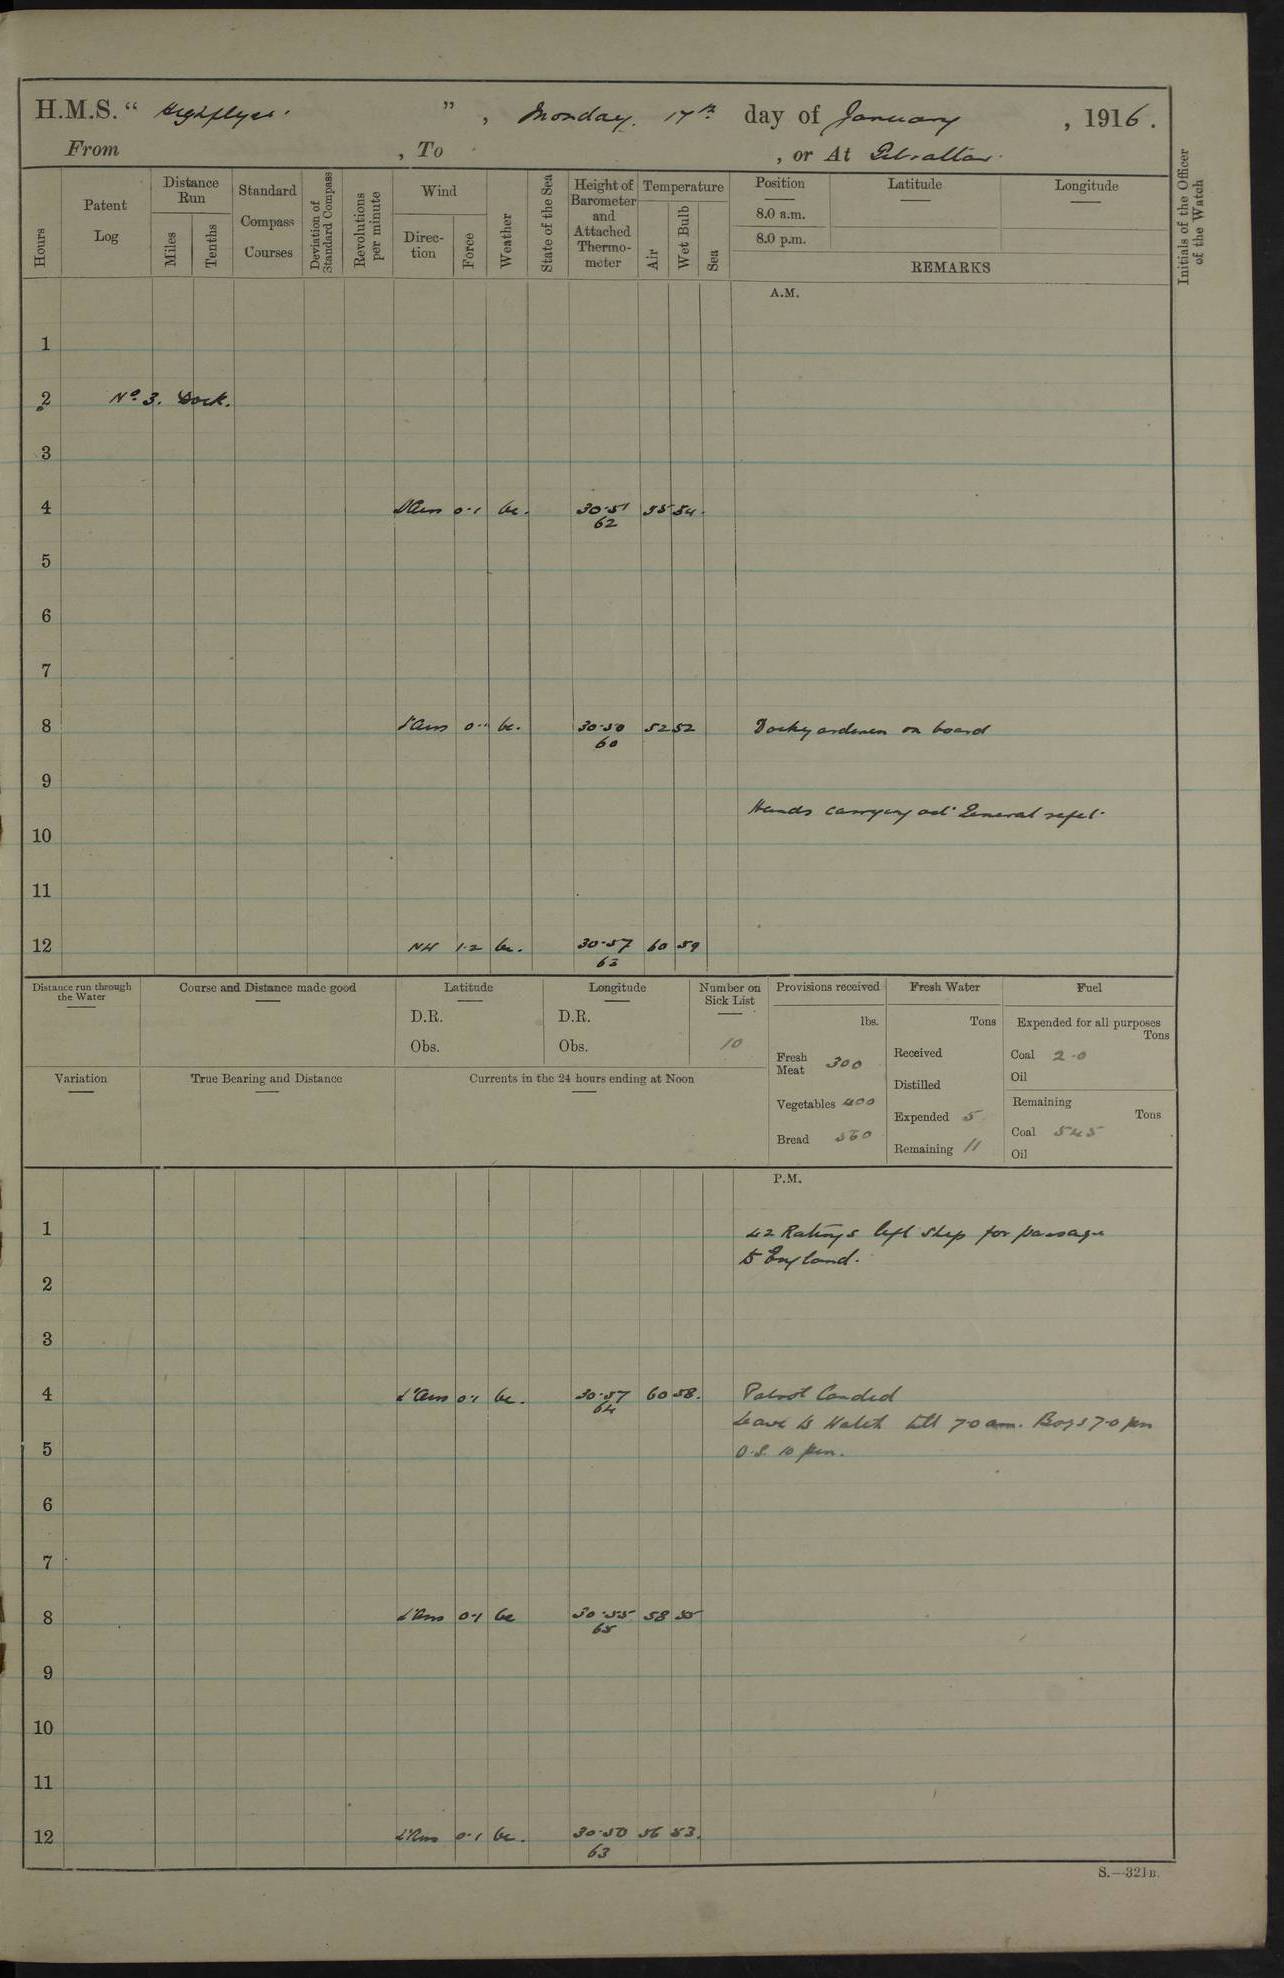 H.M.S. " Highflyer. ", Monday. 17th day of January, 1916.
From , To , or At Gibraltar.
Hours
Patent Log
Distance Run
Miles
Tenths
Standard Compass Courses
Deviation of Standard Compass
Revolutions per minute
Wind
Direction
Force
Weather
State of the Sea
Height of Barometer and Attached Thermometer
Temperature
Air
Wet Bulb
Sea
Position
8.0 a.m.
8.0 p.m.
Latitude
Longitude
REMARKS
Initials of the Officer of the Watch
A.M.
1
2 No. 3. Dock.
3
4 0·1 bc. 30·51 55 54.
62
5
6
7
8 0·1 bc. 30·50 52 52 Dockyardmen on board
60
9
Hands carrying out General refit.
10
11
12 NW 1·2 bc. 30·57 60 59
63
Distance run through the Water
Course and Distance made good
Latitude
D.R.
Obs.
Longitude
D.R.
Obs.
Number on Sick List
10
Variation
True Bearing and Distance
Currents in the 24 hours ending at Noon
Provisions received
lbs.
Fresh Meat 300
Vegetables 400
Bread 560
Fresh Water
Tons
Received
Distilled
Expended 5
Remaining 11
Fuel
Expended for all purposes
Tons
Coal 2·0
Oil
Remaining
Tons
Coal 545
Oil
P.M.
1 42 Ratings left ship for passage
to England.
2
3
4 0·1 bc. 30·57 60 58. Patrol landed
64
Leave to Watch till 7·0 am. Boys 7·0 pm
5 O.S. 10 pm.
6
7
8 0·1 bc 30·55 58 55
65
9
10
11
12 0·1 bc. 30·50 56 53.
63
S.—321B.